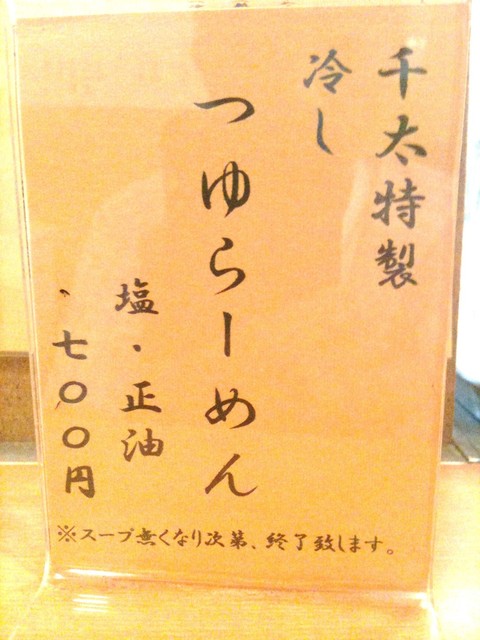 千太特製
冷し
つゆらーめん
塩・正油
七〇〇円
※スープ無くなり次第、終了致します。